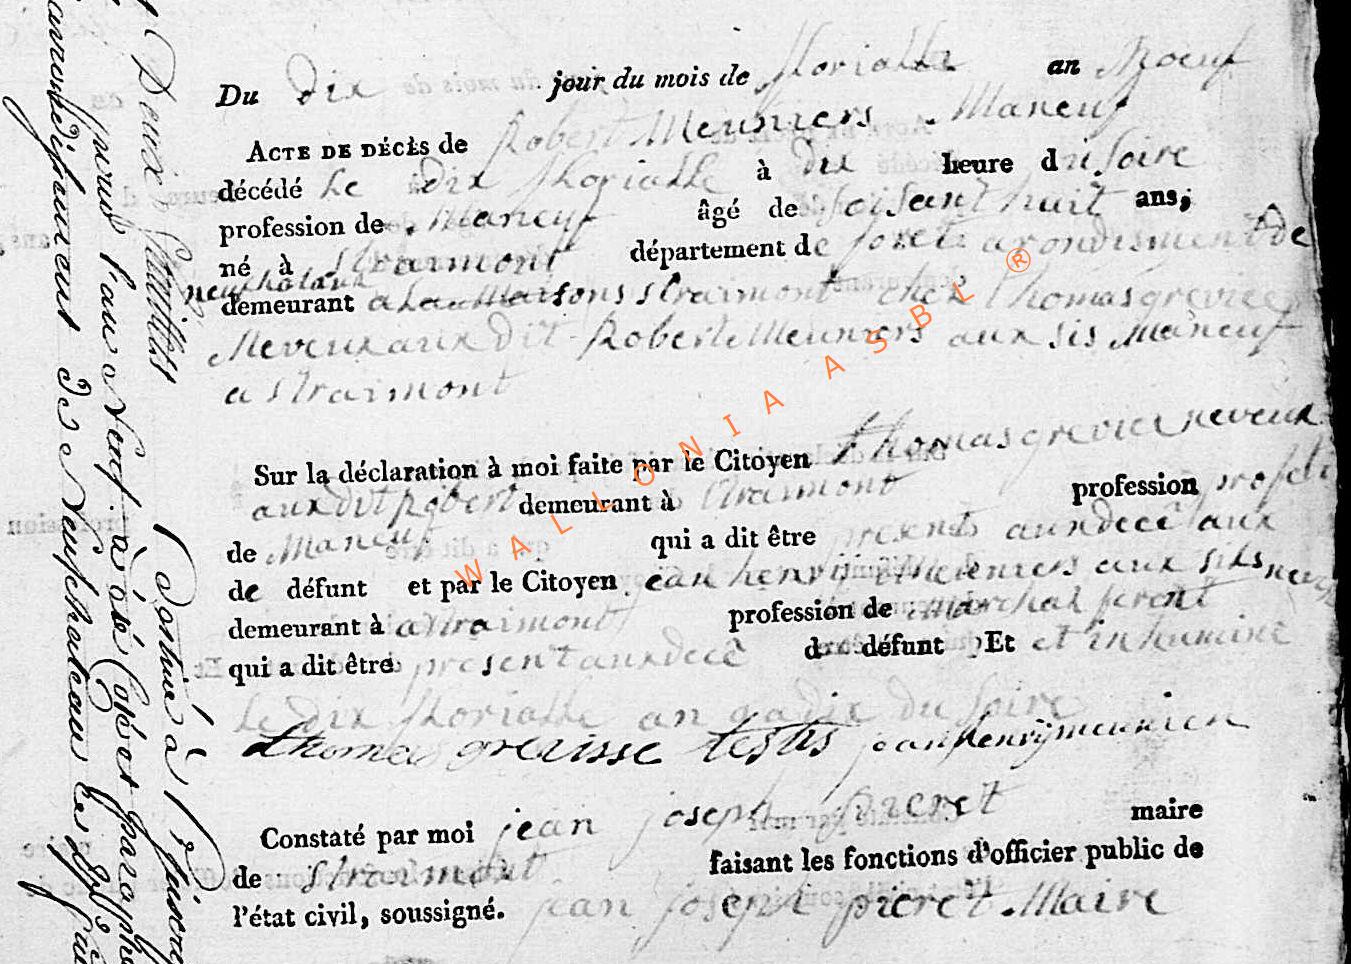 Du dix jour du mois de florialle an noeuf
ACTE DE DÉCÈS de Robert Meuniers Maneuf
décédé Le dix florialle à dix heure du soire
profession de Maneuf âgé de soisant huit ans;
né à straimont département de foret arondisment de
neufchataux
demeurant a La Maisons straimont chez thomas grevice
Neveux aux dit Robert Meuniers aux sis Maneuf
a straimont
Sur la déclaration à moi faite par le Citoyen thomas grevice neveux
aux dit Robert demeurant à straimont profession
de Maneuf qui a dit être present aux decè aux
de défunt et par le Citoyen jean henry meuniers aux sis
demeurant à a straimont profession de marchal ferent
qui a dit être present aux decè du défunt Et et inhuminé
Le dix florialle an 9 a dix du soire
thomas grevisse testis jean henry meunier
Constaté par moi jean joseph pieret maire
de straimont faisant les fonctions d'officier public de
l'état civil, soussigné. jean joseph pieret Maire
Deux feuillets
pour l'an Neuf a été Coté et paraphé
de Neufchateau
WALLONIA ASBL ®